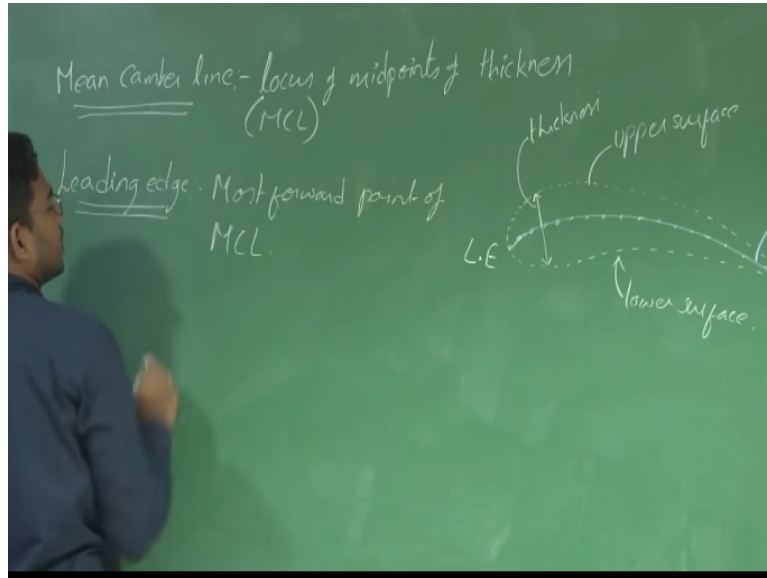 Mean Camber line:- locus of midpoints of thickness
(MCL)
Leading edge:- Most forward point of
MCL.
thickness
upper surface
L.E
lower surface.